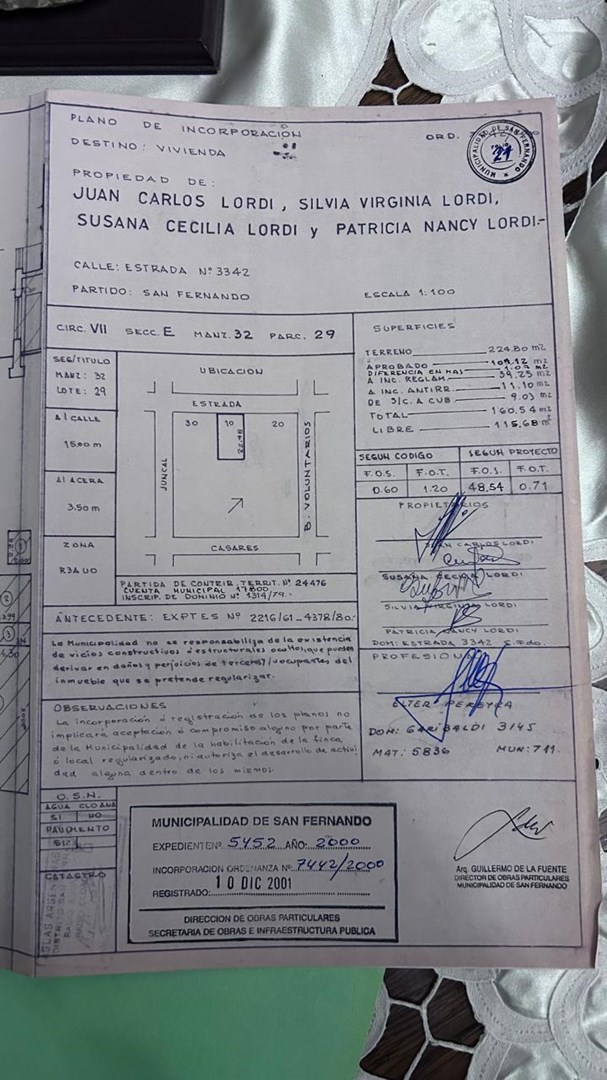 PLANO DE INCORPORACIÓN
ORD.
DESTINO: VIVIENDA
MUNICIPALIDAD DE SAN FERNANDO
FOLIO
21
PROPIEDAD DE:
JUAN CARLOS LORDI, SILVIA VIRGINIA LORDI,
SUSANA CECILIA LORDI y PATRICIA NANCY LORDI.-
CALLE: ESTRADA Nº 3342
PARTIDO: SAN FERNANDO
ESCALA 1:100
CIRC. VII SECC. E MANZ. 32 PARC. 29
SEG/TITULO
MANZ: 32
LOTE: 29
Al CALLE
15,00 m
Al ACERA
3.50 m
ZONA
UBICACION
ESTRADA
30 10 20
JUNCAL
B. VOLUNTARIOS
CASARES
PARTIDA DE CONTRIB. TERRIT. Nº 24476
CUENTA MUNICIPAL 17600
INSCRIP. DE DOMINIO Nº 1314/79.-
ANTECEDENTE: EXPTES Nº 2216/61-4378/80.-
La Municipalidad no se responsabiliza de la existencia
de vicios constructivos ó estructurales ocultos, que puedan
derivar en daños y perjoicios de terceros y/u ocupantes del
inmueble que se pretende regularizar.
OBSERVACIONES
La incorporación ó registración de los planos no
implicará aceptación ó compromiso alguno por parte
de la Municipalidad de la habilitación de la finca
ó local regularizado, ni autoriza el desarrollo de activi
dad alguna dentro de los mismos.
SUPERFICIES
TERRENO 224.80 m2
APROBADO 109.12 m2
DIFERENCIA EN MAS 1.07 M2
A INC. REGLAM. 39.25 m2
A INC. ANTIRR. 11.10 m2
DE S/C. A CUB 9.03 m2
TOTAL 160.54 m2
LIBRE 115,68 m2
SEGUN CODIGO SEGUN PROYECTO
F.O.S. F.O.T. F.O.S. F.O.T.
0.60 1.20 48,54 0.71
PROPIETARIOS
JUAN CARLOS LORDI
SUSANA CECILIA LORDI
SILVIA VIRGINIA LORDI
PATRICIA NANCY LORDI
DOM: ESTRADA 3342 S.Fdo.
PROFESIONAL
ELTER PEREYRA
DOM: GARIBALDI 3145
MAT: 5836 MUN: 711.
O.S.N.
AGUA CLOACA
SI NO
PAVIMENTO
SI
CATASTRO
MUNICIPALIDAD DE SAN FERNANDO
EXPEDIENTE Nº 5452 AÑO: 2000
INCORPORACION ORDENANZA Nº 7442/2000
REGISTRADO: 10 DIC 2001
DIRECCION DE OBRAS PARTICULARES
SECRETARIA DE OBRAS E INFRAESTRUCTURA PUBLICA
Arq. GUILLERMO DE LA FUENTE
DIRECTOR DE OBRAS PARTICULARES
MUNICIPALIDAD DE SAN FERNANDO